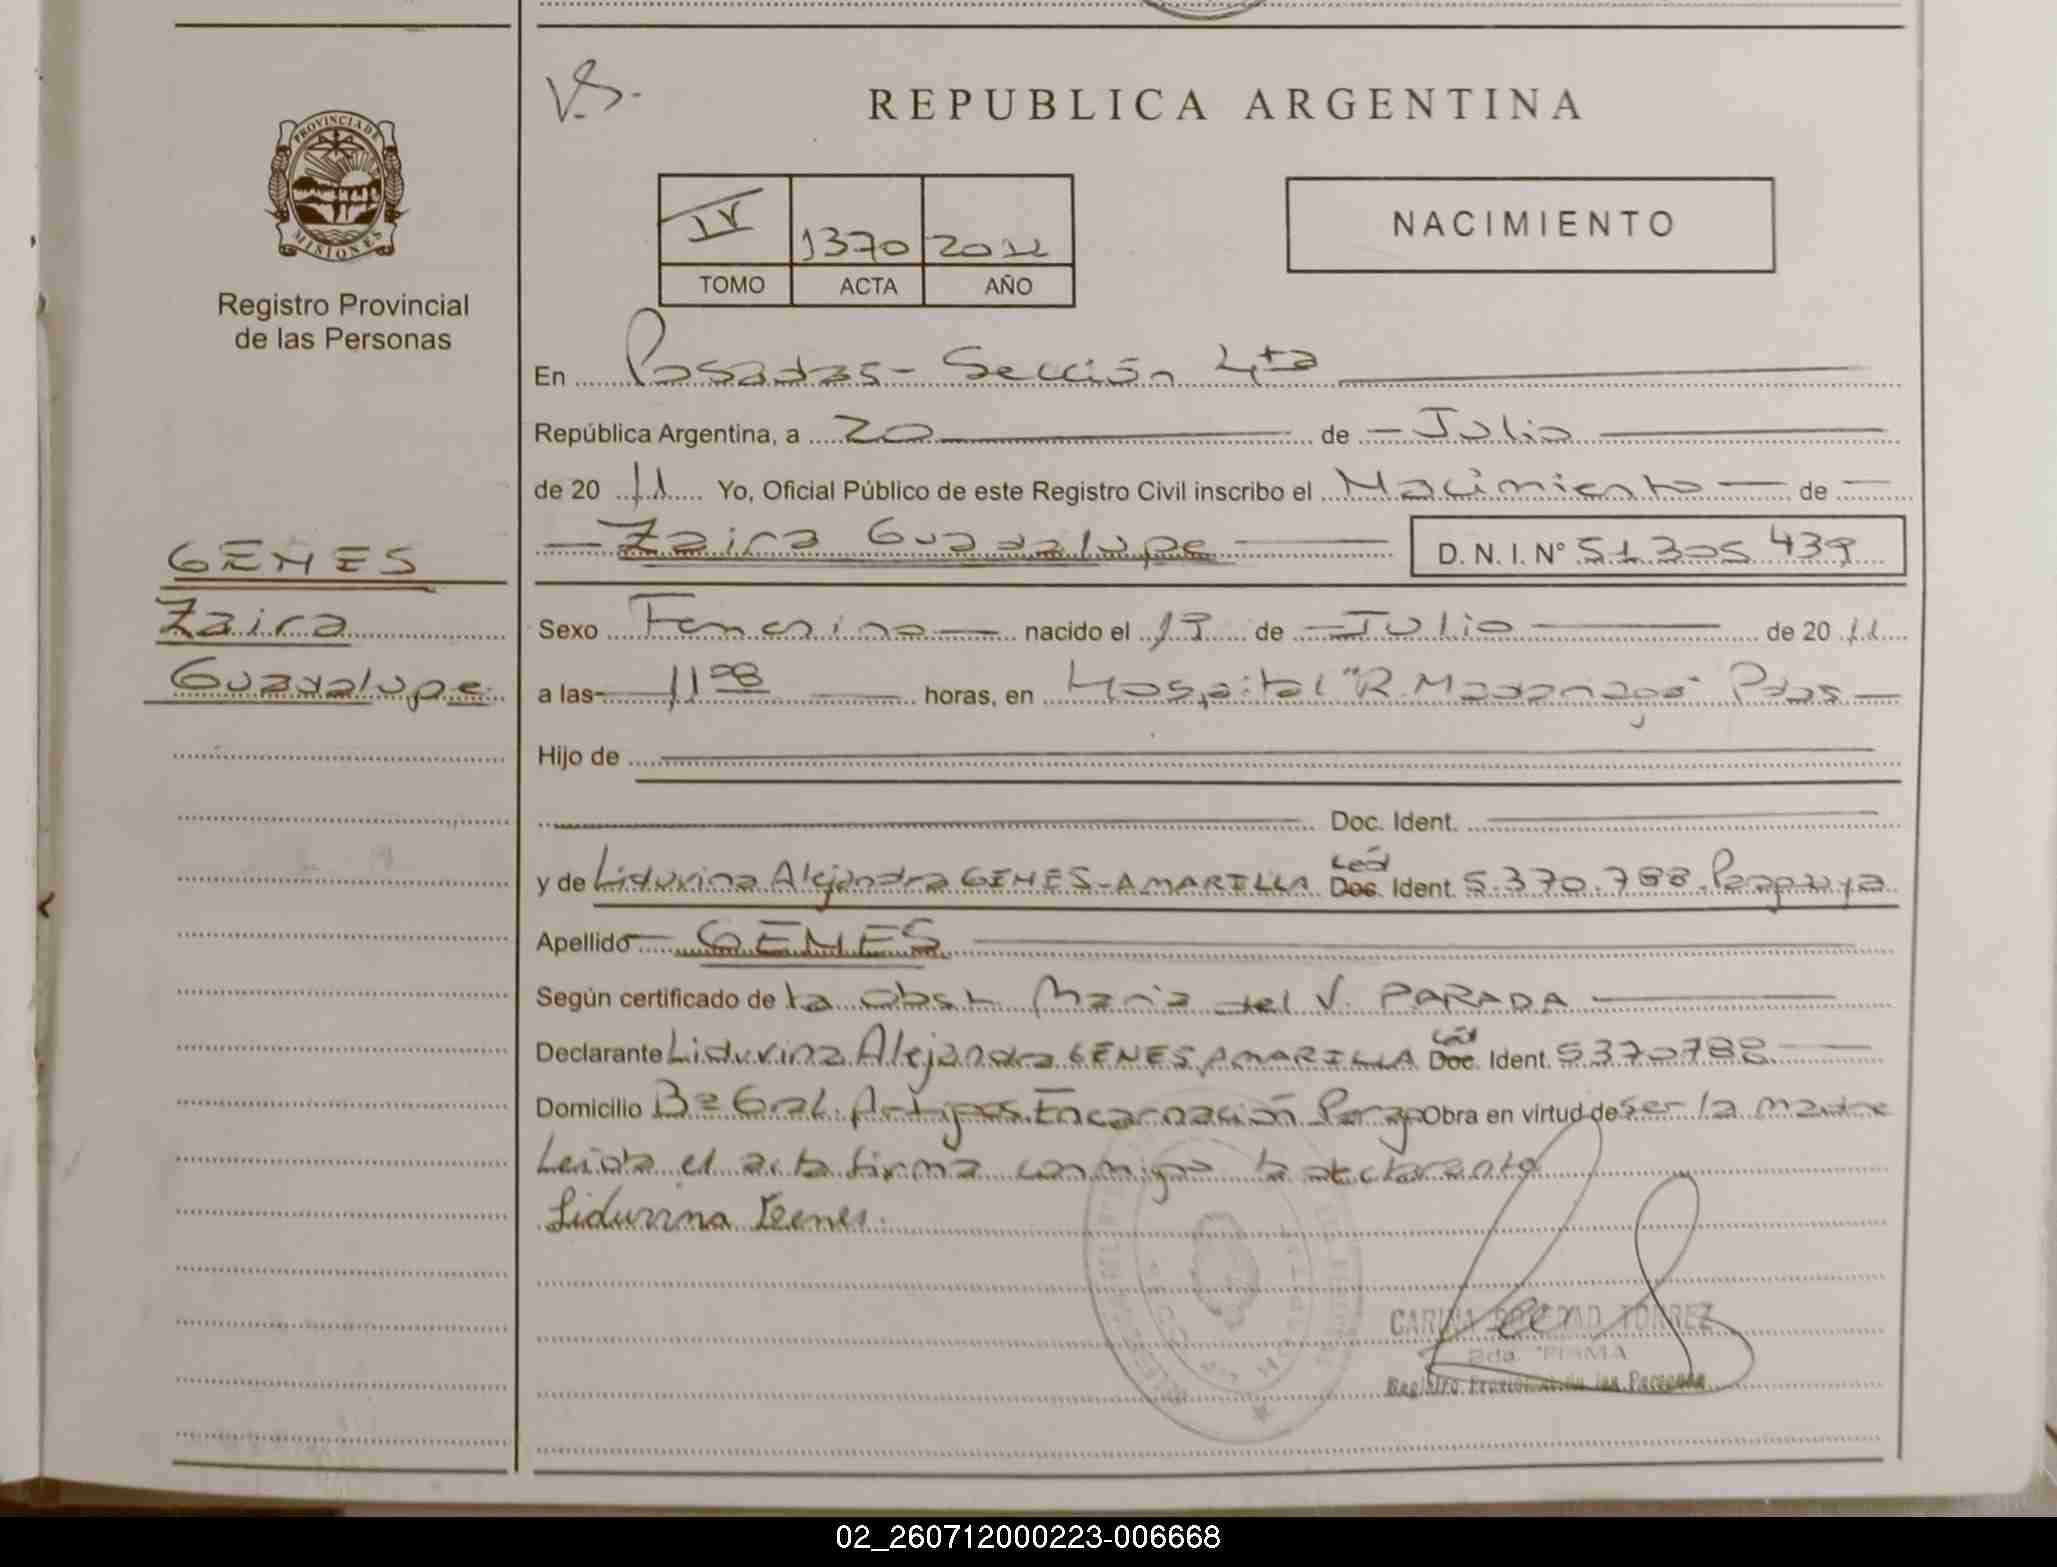 V.S.
REPUBLICA ARGENTINA
PROVINCIA DE
MISIONES
IV 1370 2011
TOMO ACTA AÑO
NACIMIENTO
Registro Provincial
de las Personas
En Posadas - Sección 4ta
República Argentina, a 20 de Julio
de 20 11 Yo, Oficial Público de este Registro Civil inscribo el Nacimiento de
Zaira Guadalupe D. N. I. N° 51.305.439
GENES
Zaira
Guadalupe
Sexo Femenino nacido el de Julio de 20 11
a las 11 08 horas, en Hospital "R. Madariaga" Pdas
Hijo de
Doc. Ident.
y de Liduvina Alejandra GENES-AMARILLA Ced Doc. Ident. 5.370.788. Paraguaya
Apellido GENES
Según certificado de la Obst. Maria del V. PARADA
Declarante Liduvina Alejandra GENES AMARILLA Ced Doc. Ident. 5370788
Domicilio Bº Gral. Artigas Encarnación Parag Obra en virtud de ser la madre
Leida el acta firma conmigo la declarante
Liduvina Genes.
CARINA SOLEDAD TORREZ
2da. FIRMA
Registro Provincial de las Personas
02_260712000223-006668